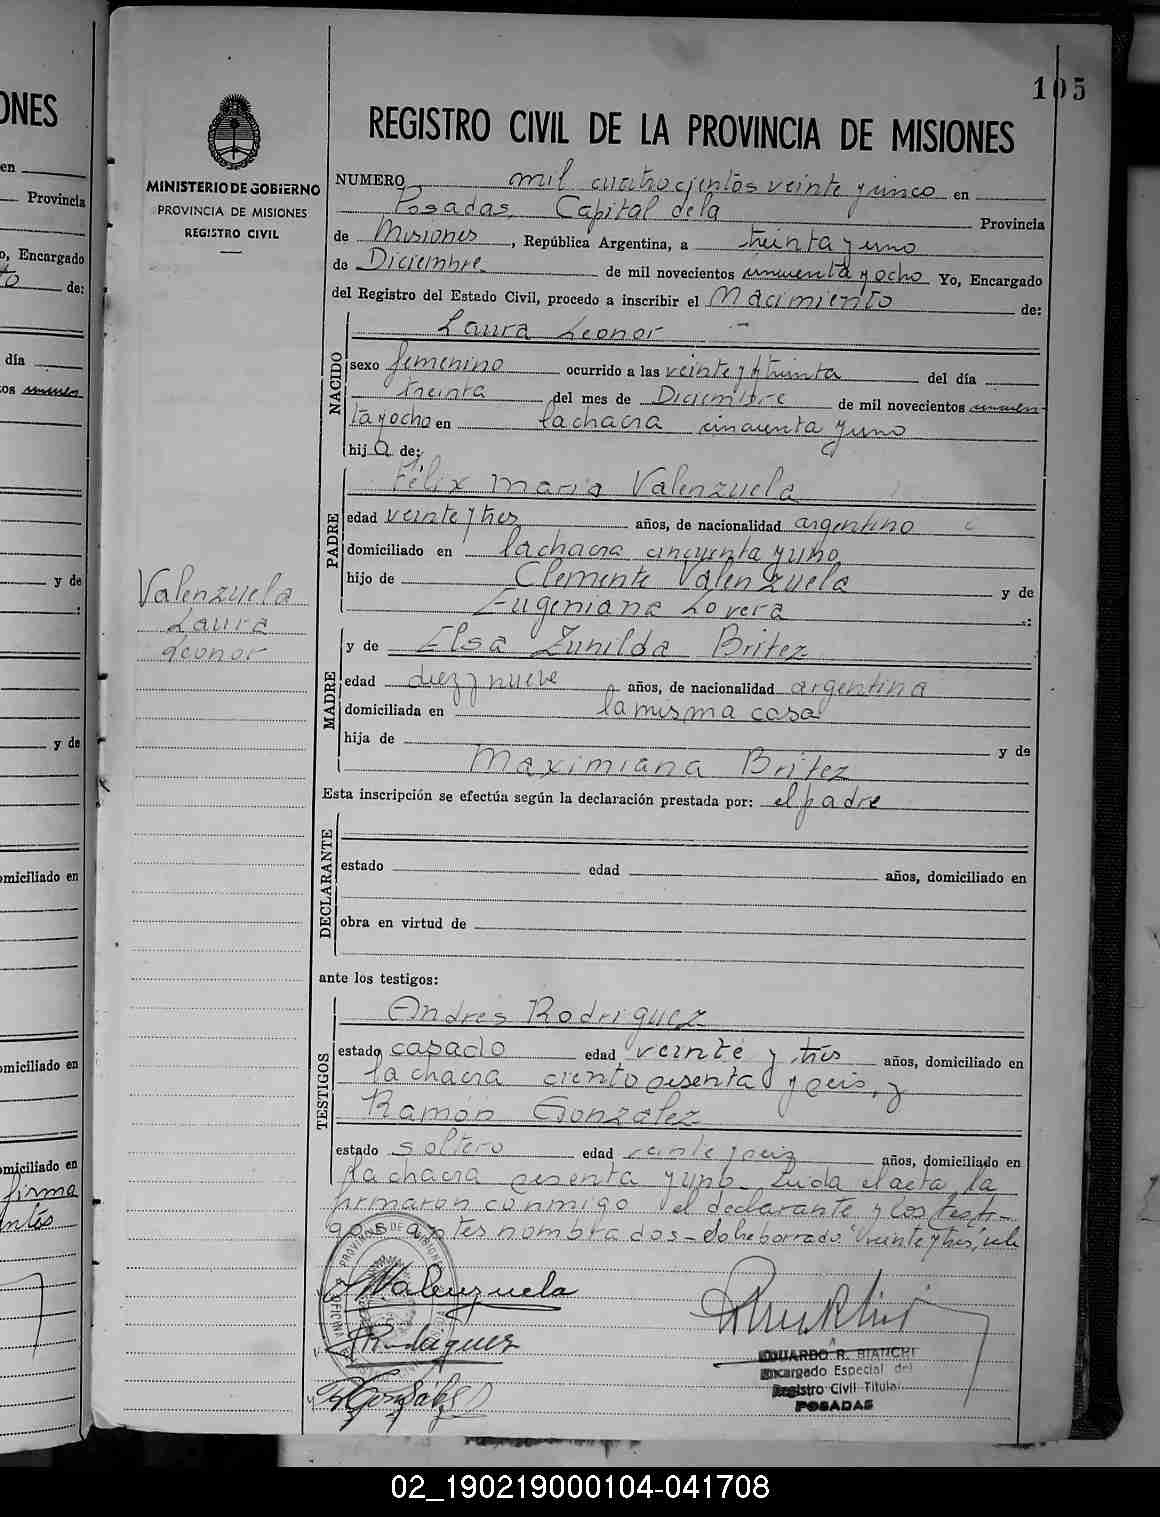 105
ONES
REGISTRO CIVIL DE LA PROVINCIA DE MISIONES
MINISTERIO DE GOBIERNO
PROVINCIA DE MISIONES
REGISTRO CIVIL
en
Provincia
o, Encargado
to de:
día
os
y de
y de
omiciliado en
omiciliado en
omiciliado en
firma
NUMERO mil cuatrocientos veinte y cinco en
Posadas, Capital de la Provincia
de Misiones, República Argentina, a treinta y uno
de Diciembre de mil novecientos cincuenta y ocho Yo, Encargado
del Registro del Estado Civil, procedo a inscribir el Nacimiento de:
NACIDO
Laura Leonor
sexo femenino ocurrido a las veinte y treinta del día
treinta del mes de Diciembre de mil novecientos cincuen-
ta y ocho en la chacra cincuenta y uno
hija de:
PADRE
Félix Maria Valenzuela
edad veinte y tres años, de nacionalidad argentino
domiciliado en la chacra cincuenta y uno
hijo de Clemente Valenzuela y de
Eugeniana Lovera .:
Valenzuela
Laura
Leonor
MADRE
y de Elsa Zunilda Britez
edad diez y nueve años, de nacionalidad argentina
domiciliada en la misma casa
hija de y de
Maximiana Britez
Esta inscripción se efectúa según la declaración prestada por: el padre
DECLARANTE
estado edad años, domiciliado en
obra en virtud de
ante los testigos:
TESTIGOS
Andrés Rodriguez
estado casado edad veinte y tres años, domiciliado en
la chacra ciento sesenta y seis, y
Ramón Gonzalez
estado soltero edad veinte y seis años, domiciliado en
la chacra sesenta y uno. Leida el acta la
firmaron conmigo el declarante y los testi-
gos antes nombrados - Sobre borrado "veinte y tres", vale
Valenzuela
Rodriguez
Gonzalez
EDUARDO R. BIANCHI
Encargado Especial del
Registro Civil Titular
POSADAS
02_190219000104-041708